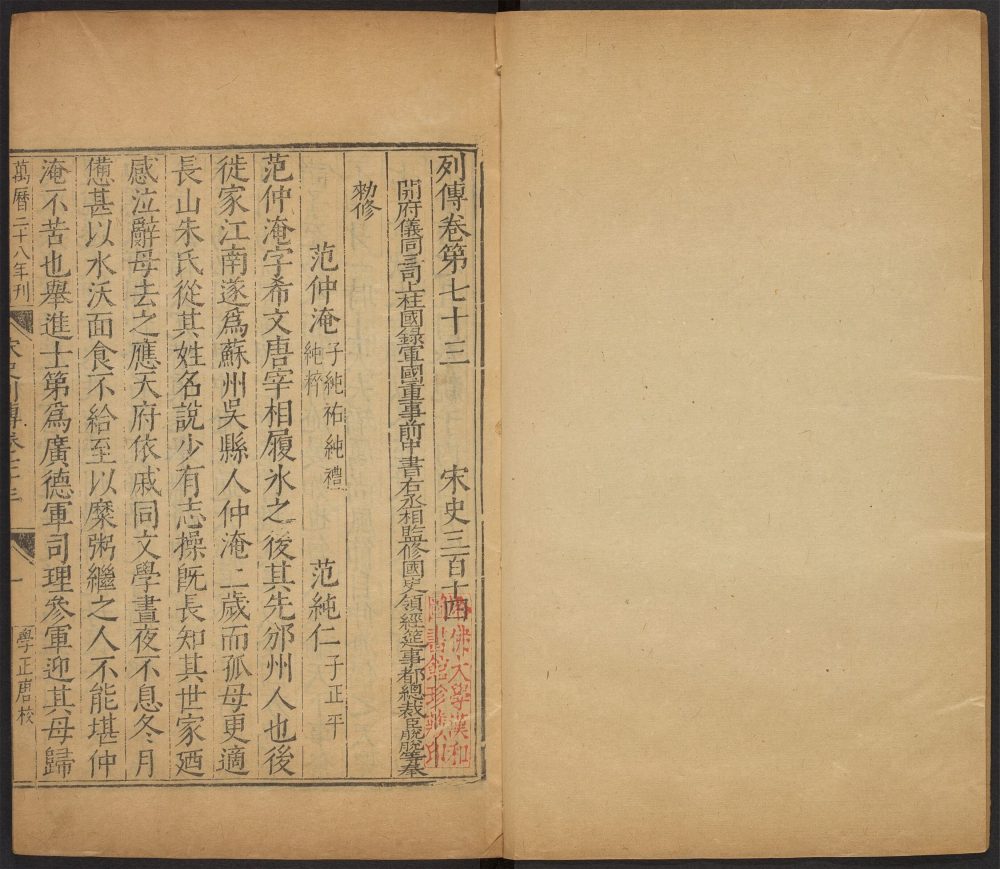 列傳卷第七十三　宋史三百十四
開府儀同三司上柱國錄軍國重事前中書右丞相監修國史領經筵事都總裁臣脫脫等奉
勑修
范仲淹子純祐純禮純粹　范純仁子正平
范仲淹字希文唐宰相履氷之後其先邠州人也後
徙家江南遂爲蘇州吳縣人仲淹二歲而孤母更適
長山朱氏從其姓名說少有志操旣長知其世家廼
感泣辭母去之應天府依戚同文學晝夜不息冬月
憊甚以水沃面食不給至以糜粥繼之人不能堪仲
淹不苦也舉進士第爲廣德軍司理參軍迎其母歸
萬曆二十八年刊
宋史列傳卷七十三
一
學正唐校
哈佛大學漢和
圖書館珍藏印